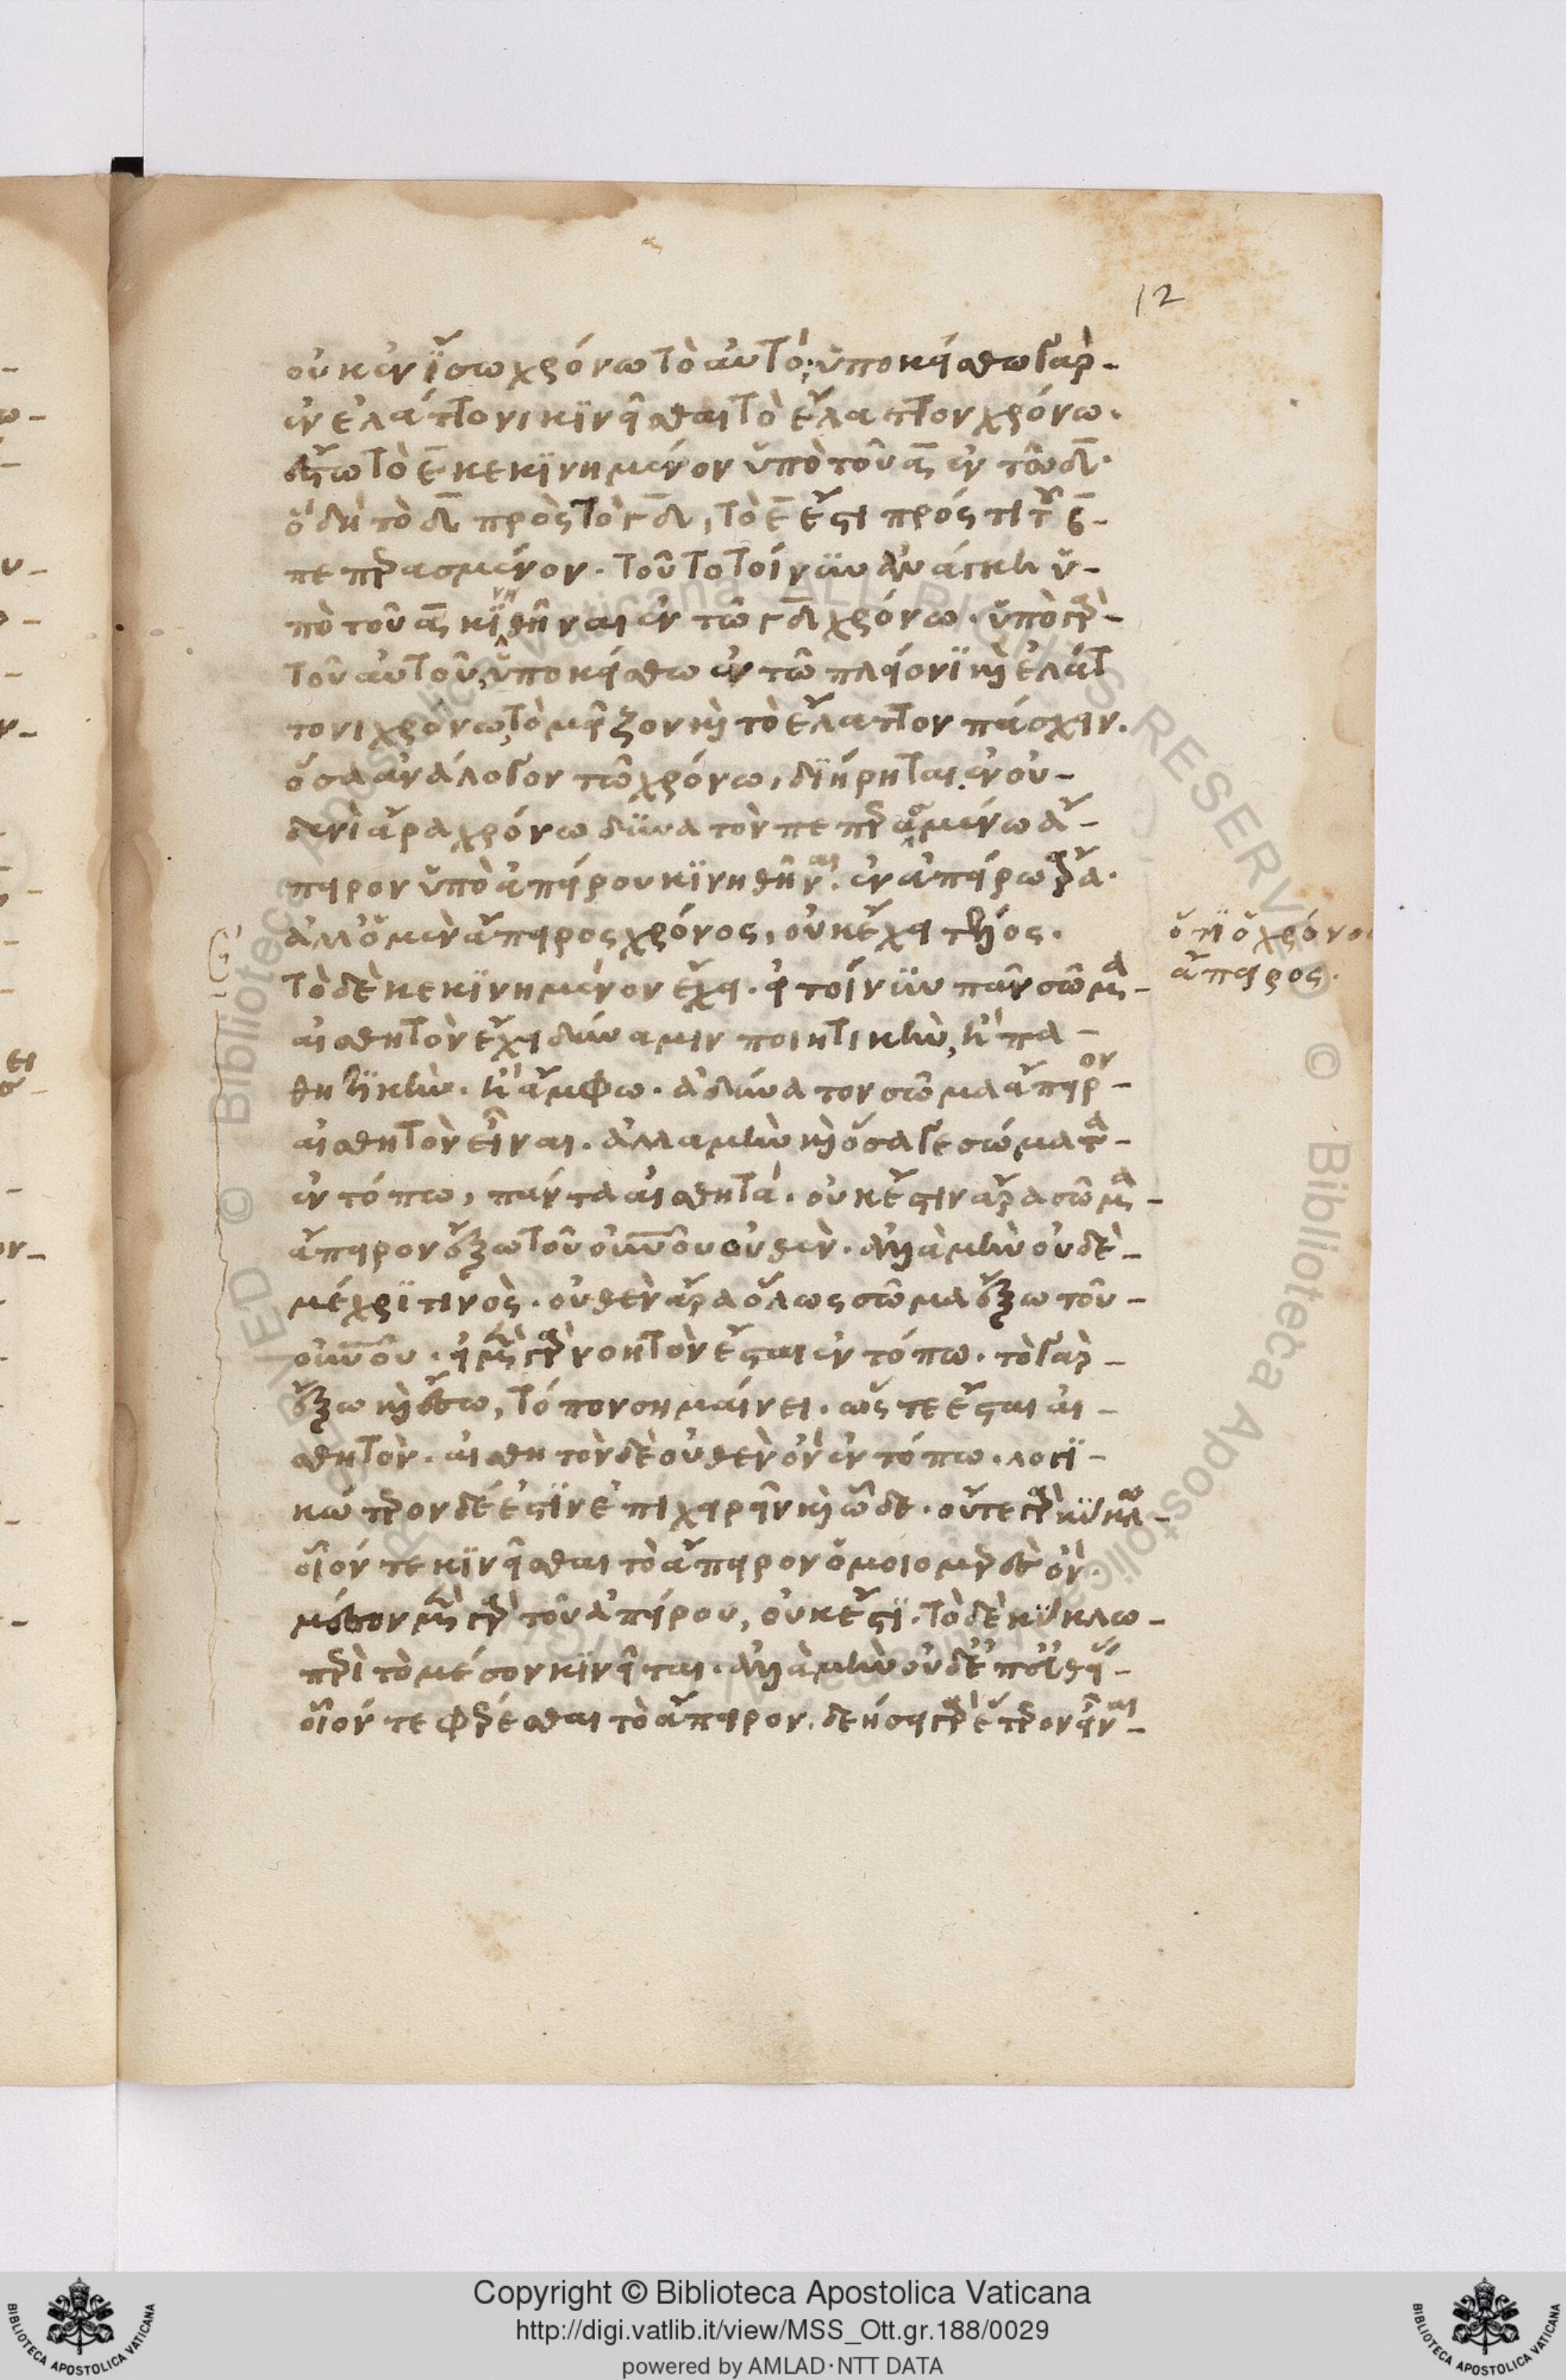 οὐκ ἐν ἴσω χρόνω τὸ αὐτό; ὑποκείσθω γὰρ-
ἐν ἐλάττονι κινεῖσθαι τὸ ἔλαττον χρόνω.
ἔστω τὸ ε κεκινημένον ὑπὸ τοῦ α ἐν τῶ δ.
ὃ δὴ τὸ δ πρὸς τὸ γδ, τὸ ε ἔστι πρός τι
πεπερασμένον. τοῦτο τοίνυν ἀνάγκη ὑ-
πὸ τοῦ α κινηθῆναι ἐν τῶ γδ χρόνω. ὑπὸ γὰρ-
τοῦ αὐτοῦ, ὑποκείσθω ἐν τῶ πλείονι καὶ ἐλάτ
τονι χρόνω, τὸ μεῖζον καὶ τὸ ἔλαττον πάσχειν.
ὅσα ἀνάλογον τῶ χρόνω, διήρηται. ἐν οὐ-
δενὶ ἄρα χρόνω δυνατὸν πεπερασμένω ἄ-
πειρον ὑπὸ ἀπείρου κινηθῆναι. ἐν ἀπείρω ἄρα.
ἀλλ' ὁ μὲν ἄπειρος χρόνος, οὐκ ἔχει τέλος.
τὸ δὲ κεκινημένον ἔχει. εἰ τοίνυν πᾶν σῶμα-
αἰσθητὸν ἔχει δύναμιν ποιητικὴν, ἢ πα-
θητικὴν. ἢ ἄμφω. ἀδύνατον σῶμα ἄπειρον-
αἰσθητὸν εἶναι. ἀλλὰ μὴν καὶ ὅσα γε σώματα-
ἐν τόπω, πάντα αἰσθητά. οὐκ ἔστιν ἄρα σῶμα-
ἄπειρον ἔξω τοῦ οὐνοῦ οὐθὲν. ἀλλὰ μὴν οὐδὲ-
μέχρι τινὸς. οὐθὲν ἄρα ὅλως σῶμα ἔξω τοῦ-
οὐνοῦ. εἰ μὲν γὰρ νοητὸν ἔσται ἐν τόπω. τὸ γὰρ-
ἔξω καὶ ἔσω, τόπον σημαίνει. ὥστε ἔσται αἰ-
σθητὸν. αἰσθητὸν δὲ οὐθὲν ὃ μὴ ἐν τόπω. λογι-
κώτερον δέ ἐστὶν ἐπιχειρεῖν καὶ ὧδε. οὔτε γὰρ κύκλω-
οἷόν τε κινεῖσθαι τὸ ἄπειρον ὁμοιομερὲς ὂν.
μέσον μὲν γὰρ τοῦ ἀπείρου, οὐκ ἔστι. τὸ δὲ κύκλω-
περὶ τὸ μέσον κινεῖται. ἀλλὰ μὴν οὐδ' ἐπ' εὐθεί-
οἷόν τε φέρεσθαι τὸ ἄπειρον. δεήσει γὰρ ἕτερον εἶναι-
ὅτι ὁ χρόνος
ἄπειρος.
12
Copyright © Biblioteca Apostolica Vaticana
http://digi.vatlib.it/view/MSS_Ott.gr.188/0029
powered by AMLAD·NTT DATA
BIBLIOTECA APOSTOLICA VATICANA
BIBLIOTECA APOSTOLICA VATICANA